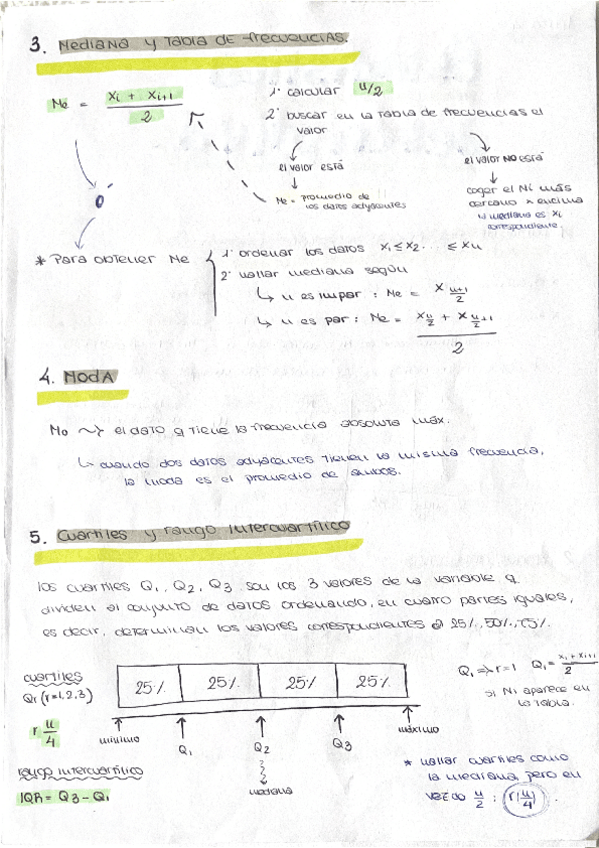 3. Mediana y Tabla de frecuencias.
Me = xi + xi+1 / 2
1º calcular n/2
2º buscar en la tabla de frecuencias el valor
el valor está
Me = promedio de los datos adyacentes
el valor NO está
coger el Ni más cercano x encima
la mediana es xi correspondiente
ó
* Para obtener Me
1º ordenar los datos x1 ≤ x2 ... ≤ xn
2º hallar mediana según
↳ n es impar : Me = x n+1/2
↳ n es par : Me = x n/2 + x n/2+1 / 2
4. Moda
Mo ~> el dato q tiene la frecuencia absoluta máx.
↳ cuando dos datos adyacentes tienen la misma frecuencia,
la moda es el promedio de ambos.
5. Cuartiles y rango intercuartílico
los cuartiles Q1, Q2, Q3 son los 3 valores de la variable q
dividen al conjunto de datos ordenando, en cuatro partes iguales,
es decir, determinan los valores correspondientes al 25%, 50%, 75%.
cuartiles
Qr (r=1,2,3)
r n/4
rango intercuartílico
IQR = Q3 - Q1
25% 25% 25% 25%
mínimo Q1 Q2 Q3 máximo
mediana
Q1 => r=1 Q1 = xi + xi+1 / 2
si Ni aparece en
la tabla.
* hallar cuartiles como
la mediana pero en
vez do n/2 : r(n/4).